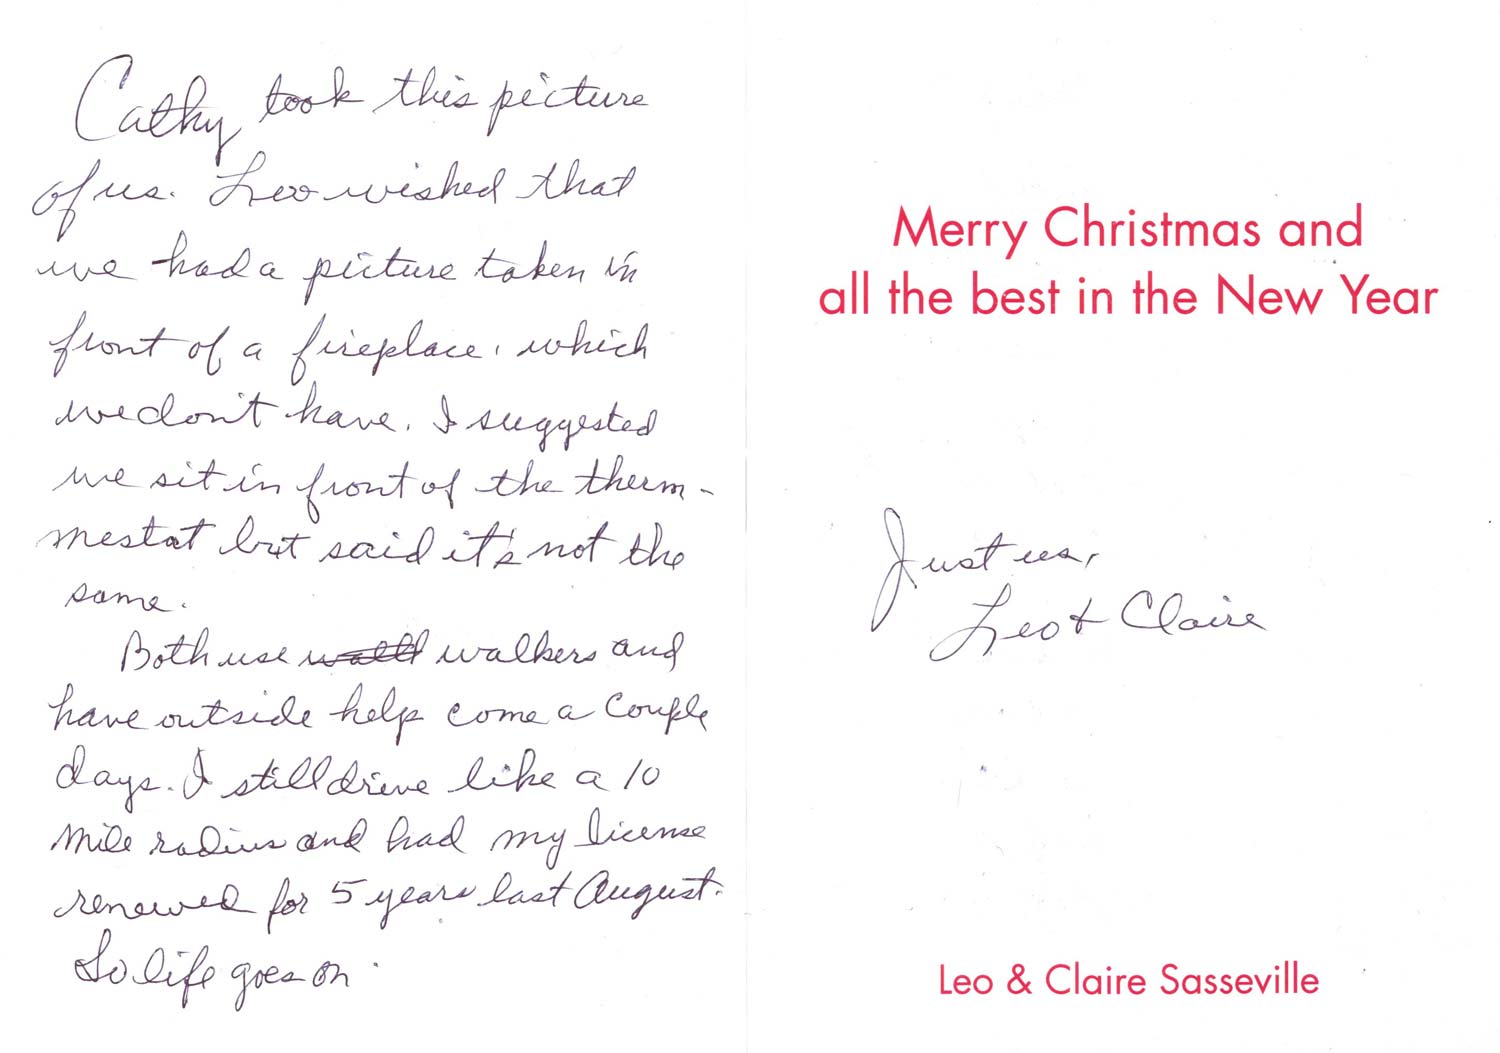 Cathy took this picture
of us. Leo wished that
we had a picture taken in
front of a fireplace, which
we don't have. I suggested
we sit in front of the therm-
mestat but said it's not the
same.
Both use walkers and
have outside help come a couple
days. I still drive like a 10
mile radius and had my license
renewed for 5 years last August.
So life goes on.
Merry Christmas and
all the best in the New Year
Just us,
Leo & Claire
Leo & Claire Sasseville